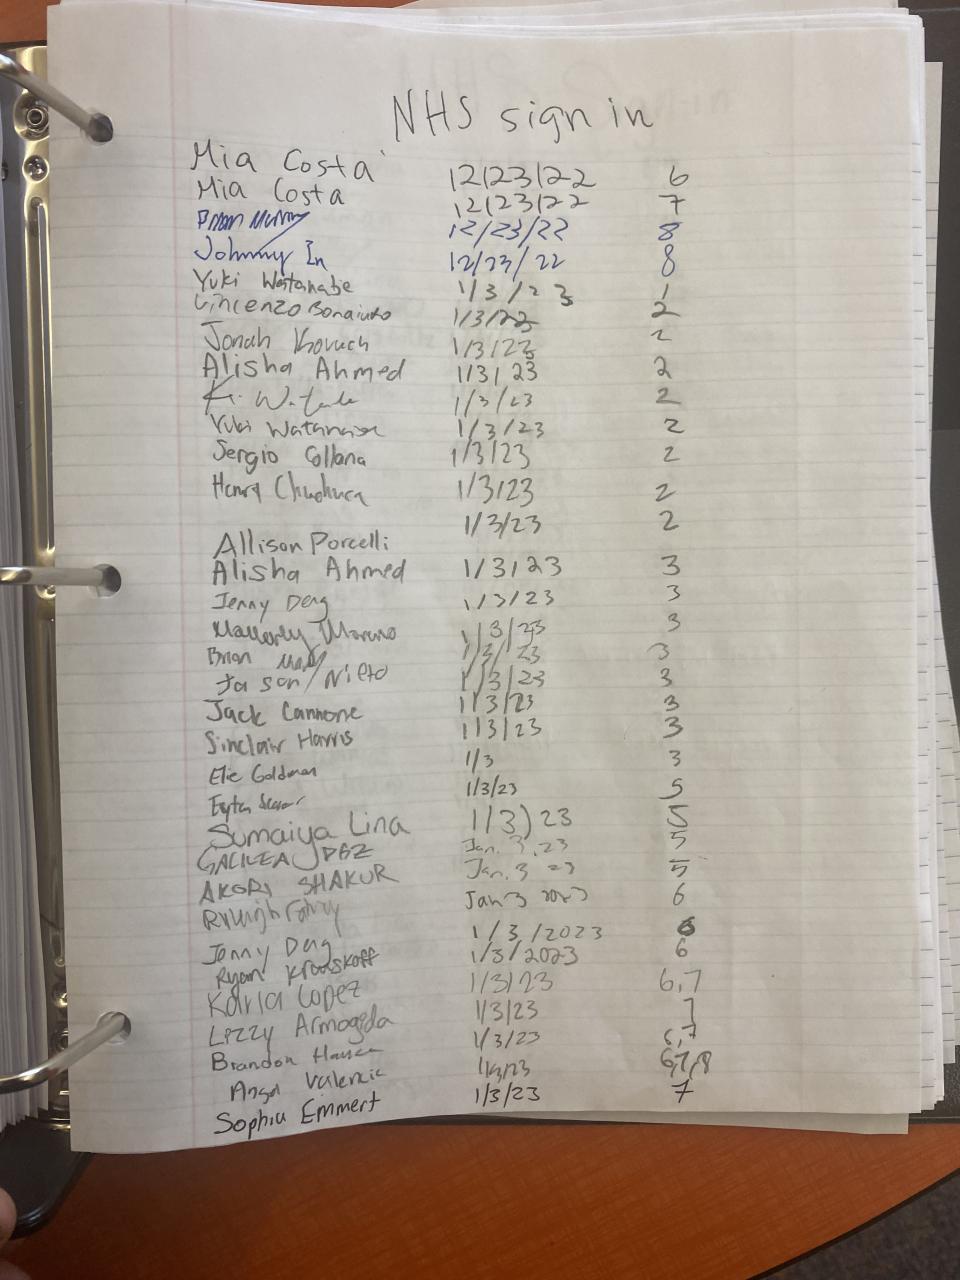 NHS sign in
Mia Costa 12/23/22 6
Mia Costa 12/23/22 7
Brian Murray 12/23/22 8
Johnny In 12/23/22 8
Yuki Watanabe 1/3/23 1
Vincenzo Bonaiuto 1/3/23 2
Jonah Kovach 1/3/23 2
Alisha Ahmed 1/3/23 2
1/3/23 2
Yuki Watanabe 1/3/23 2
Sergio Collana 1/3/23 2
Henry 1/3/23 2
Allison Porcelli 1/3/23 2
Alisha Ahmed 1/3/23 3
Jenny Deng 1/3/23 3
Mallorly Moreno 1/3/23 3
Brian 1/3/23 3
Jason Nieto 1/3/23 3
Jack Cannone 1/3/23 3
Sinclair Harris 1/3/23 3
Elie Goldman 1/3 3
1/3/23 5
Sumaiya Lina 1/3/23 5
GALILEA Jan. 3, 23 5
AKORI SHAKUR Jan. 3 23 5
Jan 3 2023 6
Jenny Deng 1/3/2023 6
Ryan Krouskoff 1/3/2023 6
Karla Lopez 1/3/23 6,7
Lizzy Armogida 1/3/23 7
Brandon 1/3/23 6,7
Angel Valencia 1/3/23 6,7,8
Sophia Emmert 1/3/23 7